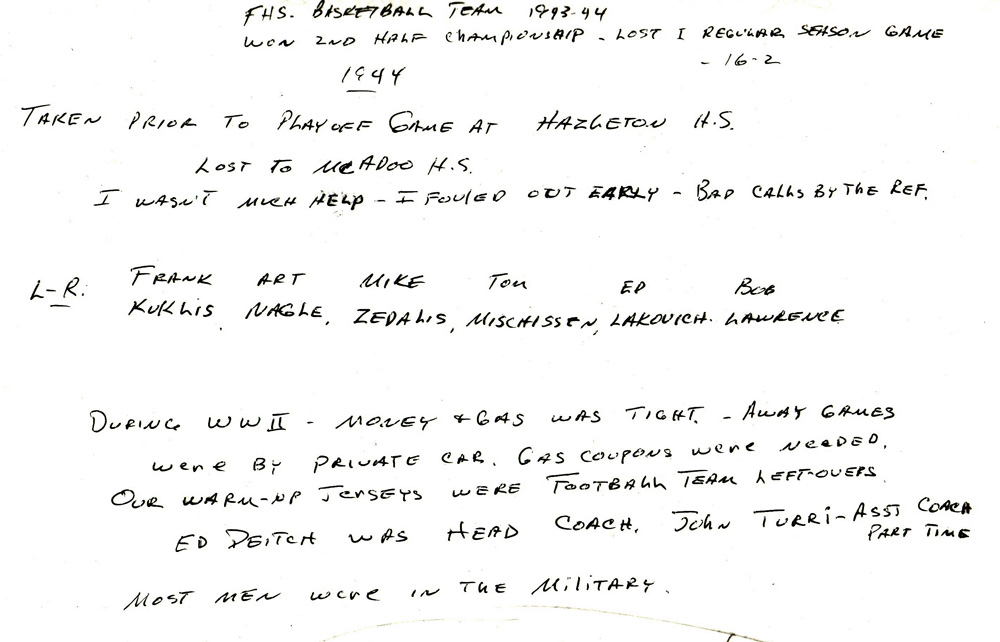 FHS. BASKETBALL TEAM 1943-44
WON 2ND HALF CHAMPIONSHIP - LOST 1 REGULAR SEASON GAME
- 16-2
1944
TAKEN PRIOR TO PLAYOFF GAME AT HAZLETON H.S.
LOST TO McADOO H.S.
I WASN'T MUCH HELP - I FOULED OUT EARLY - BAD CALLS BY THE REF.
L-R: FRANK ART MIKE TOM ED BOB
KUKLIS, NAGLE, ZEDALIS, MISCHISSEN, LAKOVICH. LAWRENCE
DURING WW II - MONEY & GAS WAS TIGHT. - AWAY GAMES
were BY PRIVATE CAR. GAS COUPONS were NEEDED.
OUR WARM-UP JERSEYS WERE FOOTBALL TEAM LEFT-OVERS.
ED DEITCH WAS HEAD COACH. JOHN TURRI - ASST COACH
PART TIME
MOST MEN were IN THE MILITARY.